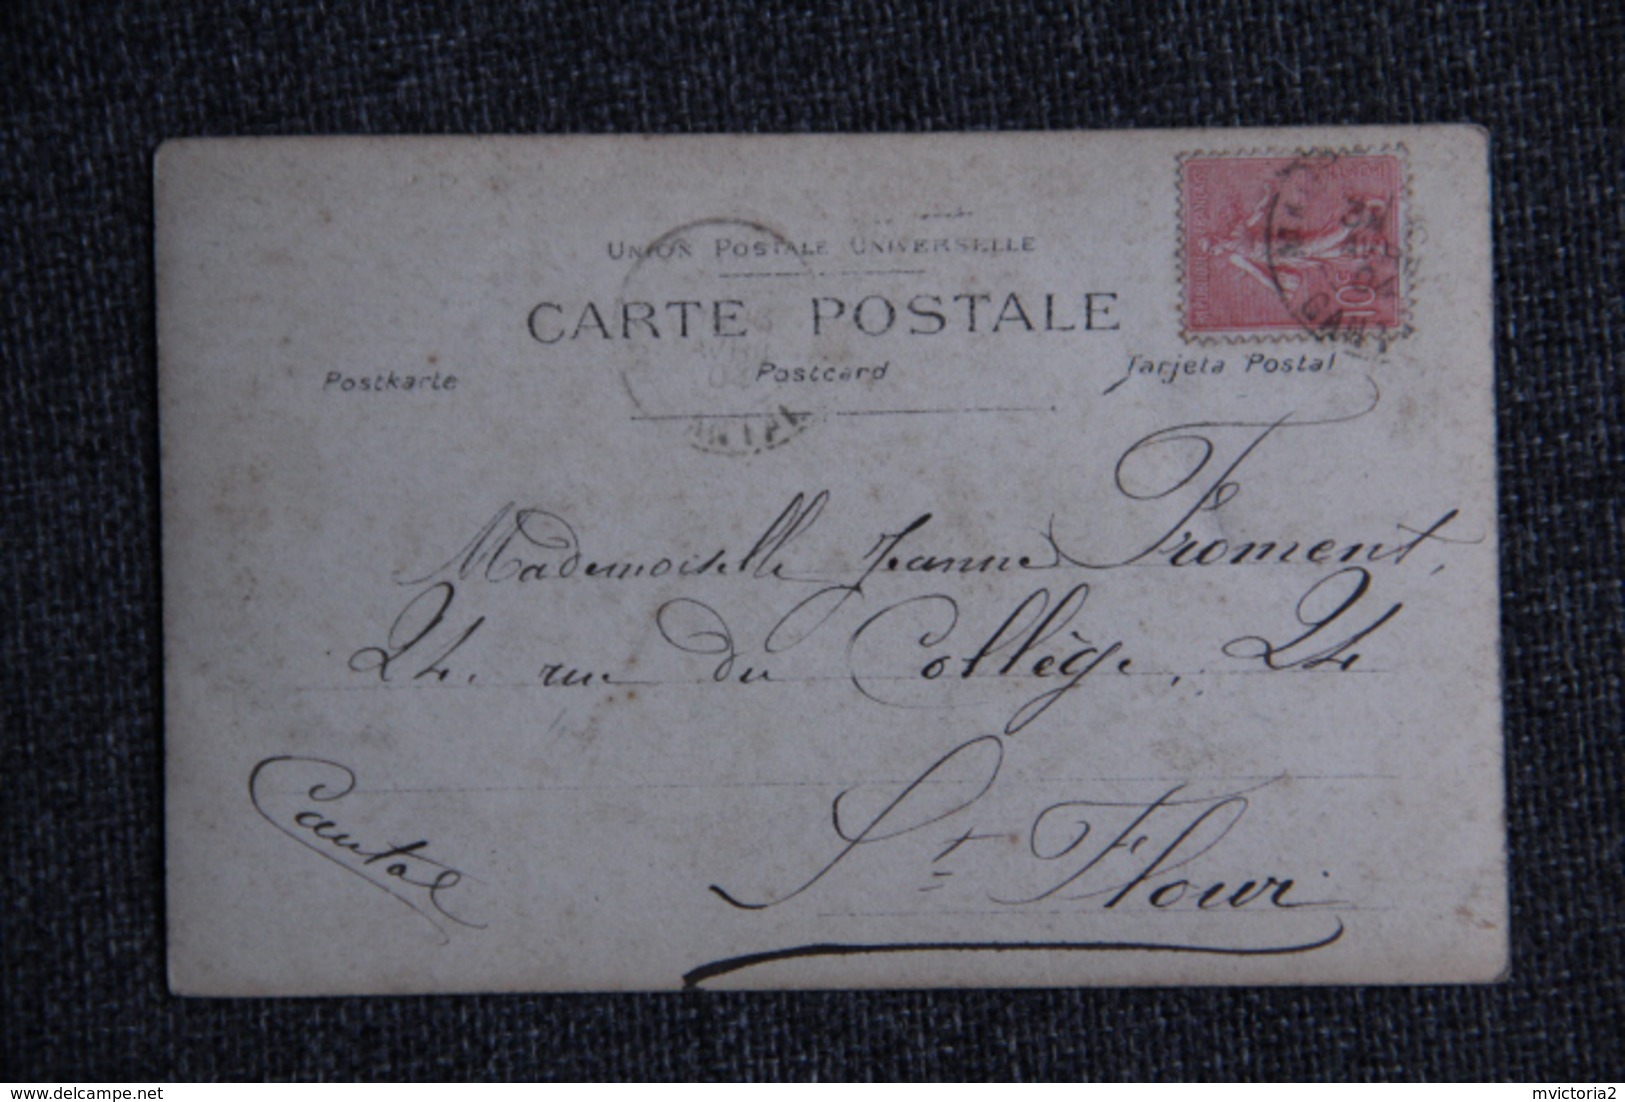 UNION POSTALE UNIVERSELLE
CARTE POSTALE
Postkarte Postcard Tarjeta Postal
Mademoiselle Jeanne Froment,
24, rue du Collège, 24
St Flour
Cantal
delcampe.net
mvictoria2